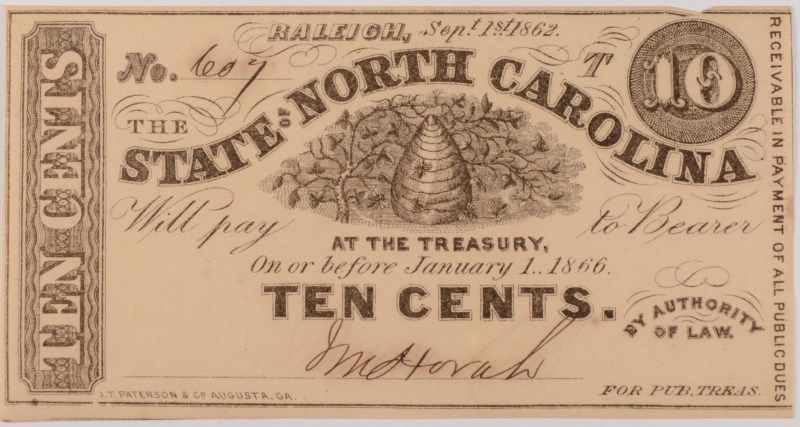 RALEIGH, Sept. 1st 1862.
No. 607
T 10
THE
STATE OF NORTH CAROLINA
Will pay to Bearer
AT THE TREASURY,
On or before January 1.. 1866.
TEN CENTS.
BY AUTHORITY
OF LAW.
FOR PUB. TREAS.
J.T. PATERSON & CO AUGUSTA, GA.
TEN CENTS
RECEIVABLE IN PAYMENT OF ALL PUBLIC DUES